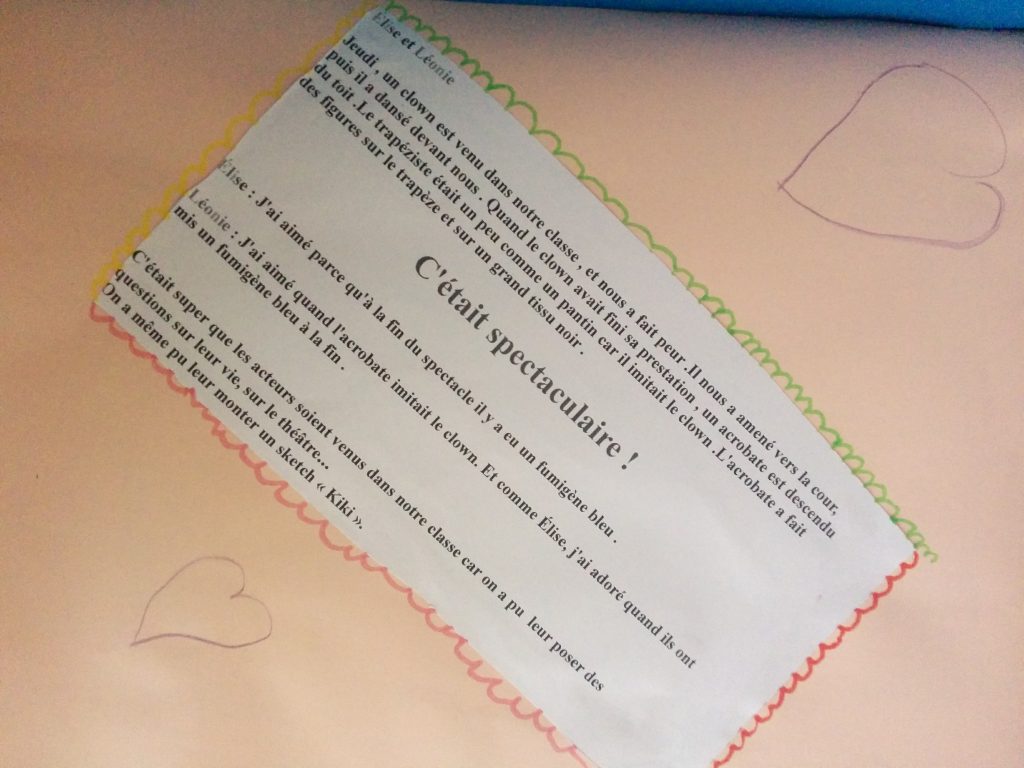 Élise et Léonie
Jeudi , un clown est venu dans notre classe , et nous a fait peur .Il nous a amené vers la cour,
puis il a dansé devant nous . Quand le clown avait fini sa prestation , un acrobate est descendu
du toit .Le trapéziste était un peu comme un pantin car il imitait le clown .L'acrobate a fait
des figures sur le trapèze et sur un grand tissu noir .
C'était spectaculaire !
Élise : J'ai aimé parce qu'à la fin du spectacle il y a eu un fumigène bleu .
Léonie : J'ai aimé quand l'acrobate imitait le clown. Et comme Élise, j'ai adoré quand ils ont
mis un fumigène bleu à la fin .
C'était super que les acteurs soient venus dans notre classe car on a pu leur poser des
questions sur leur vie, sur le théâtre...
On a même pu leur monter un sketch « Kiki ».